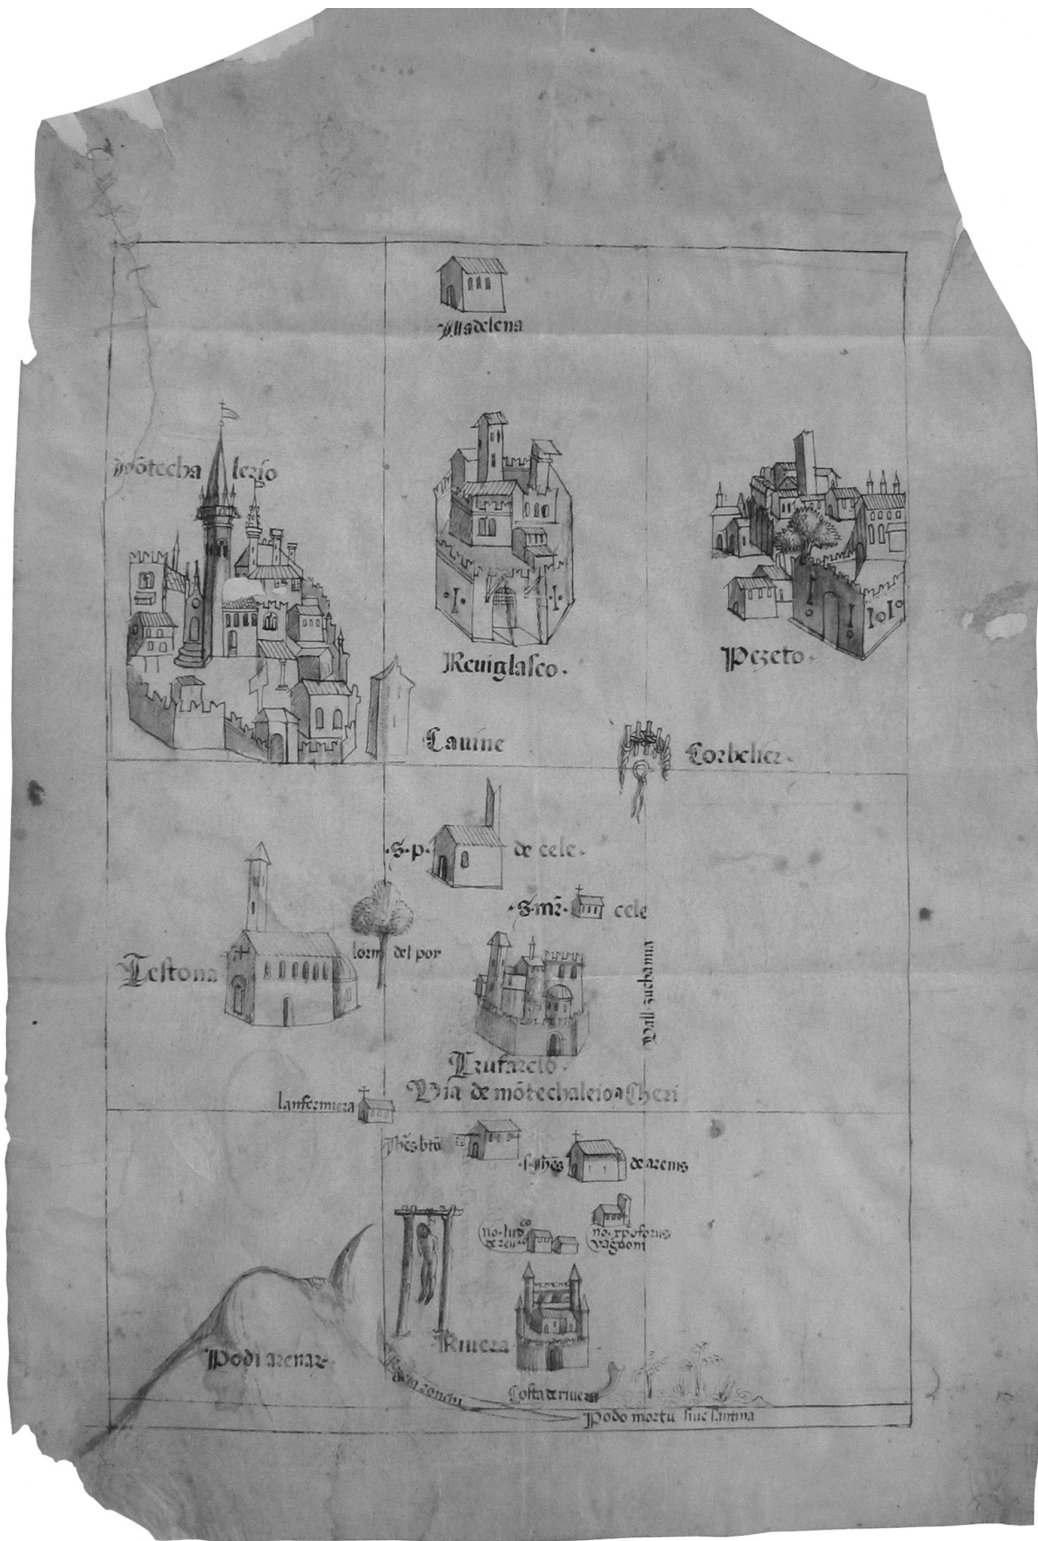 Madelena
Mõtecha lerio
Reuiglasco.
Pezeto.
Cauine
Corbelier.
.S.p. de cele.
.S.mr̃. cele
Testona
lorm del por
Vall zuchania
Trufarelo.
Via de mõtechaleio a Cheri
lanfermera
Jhẽs btõ
.S. Jhẽs de arenis
no. xpoforus
vagnoni
Podi arenar.
Riuera
Costa de riuera
Podo mortu siue santina